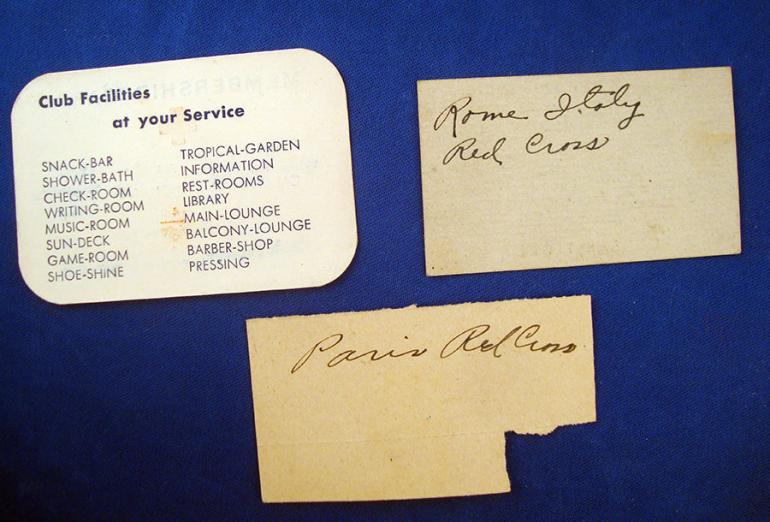 Club Facilities
at your Service
SNACK-BAR
SHOWER-BATH
CHECK-ROOM
WRITING-ROOM
MUSIC-ROOM
SUN-DECK
GAME-ROOM
SHOE-SHINE
TROPICAL-GARDEN
INFORMATION
REST-ROOMS
LIBRARY
MAIN-LOUNGE
BALCONY-LOUNGE
BARBER-SHOP
PRESSING
Rome Italy
Red Cross
Paris Red Cross